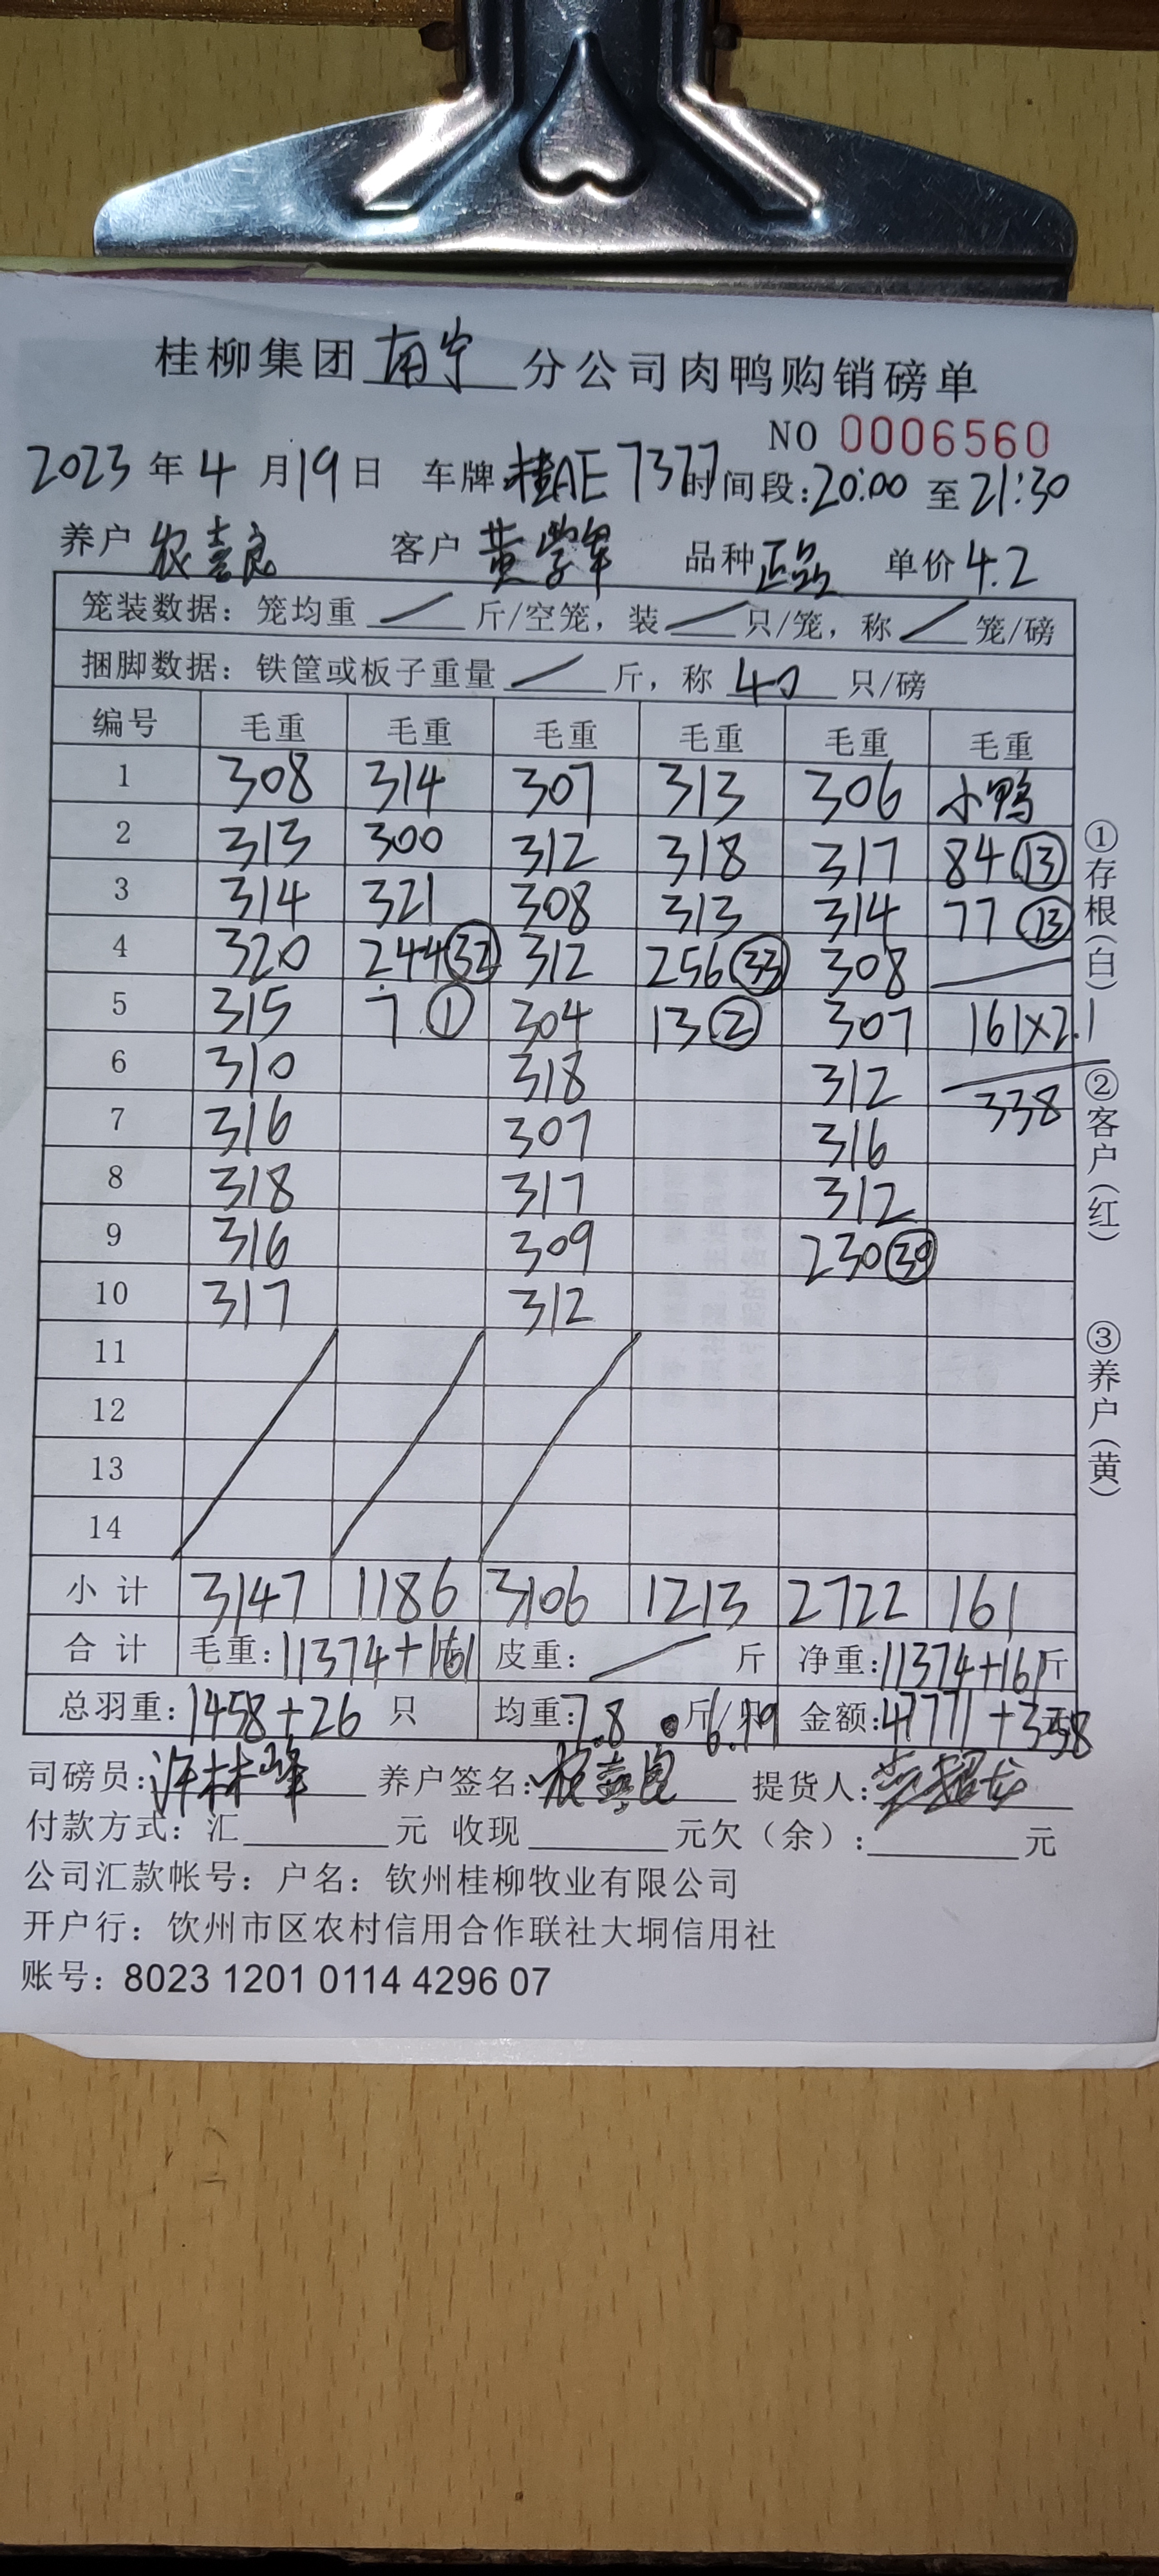 桂柳集团南宁分公司肉鸭购销磅单
NO 0006560
2023年4月19日 车牌:桂AE7377 时间段:20:00至21:30
养户 农喜良 客户 黄学军 品种 正品 单价 4.2
笼装数据：笼均重 / 斤/空笼，装 / 只/笼，称 / 笼/磅
捆脚数据：铁筐或板子重量 / 斤，称 40 只/磅
编号 毛重 毛重 毛重 毛重 毛重 毛重
1 308 314 307 313 306 小鸭
2 313 300 312 318 317 84⑬
3 314 321 308 313 314 77⑬
4 320 244㉜ 312 256㉝ 308
5 315 7① 304 13② 307 161×2.1
6 310 318 312 338
7 316 307 316
8 318 317 312
9 316 309 230㉚
10 317 312
11
12
13
14
小计 3147 1186 3106 1213 2722 161
合计 毛重:11374+161 皮重: / 斤 净重:11374+161斤
总羽重:1458+26 只 均重:7.8 6.19 斤/只 金额:47771+338
司磅员:许林峰 养户签名:农喜良 提货人:
付款方式：汇 元 收现 元欠（余）: 元
公司汇款帐号：户名：钦州桂柳牧业有限公司
开户行：饮州市区农村信用合作联社大垌信用社
账号：8023 1201 0114 4296 07
①存根(白)
②客户(红)
③养户(黄)